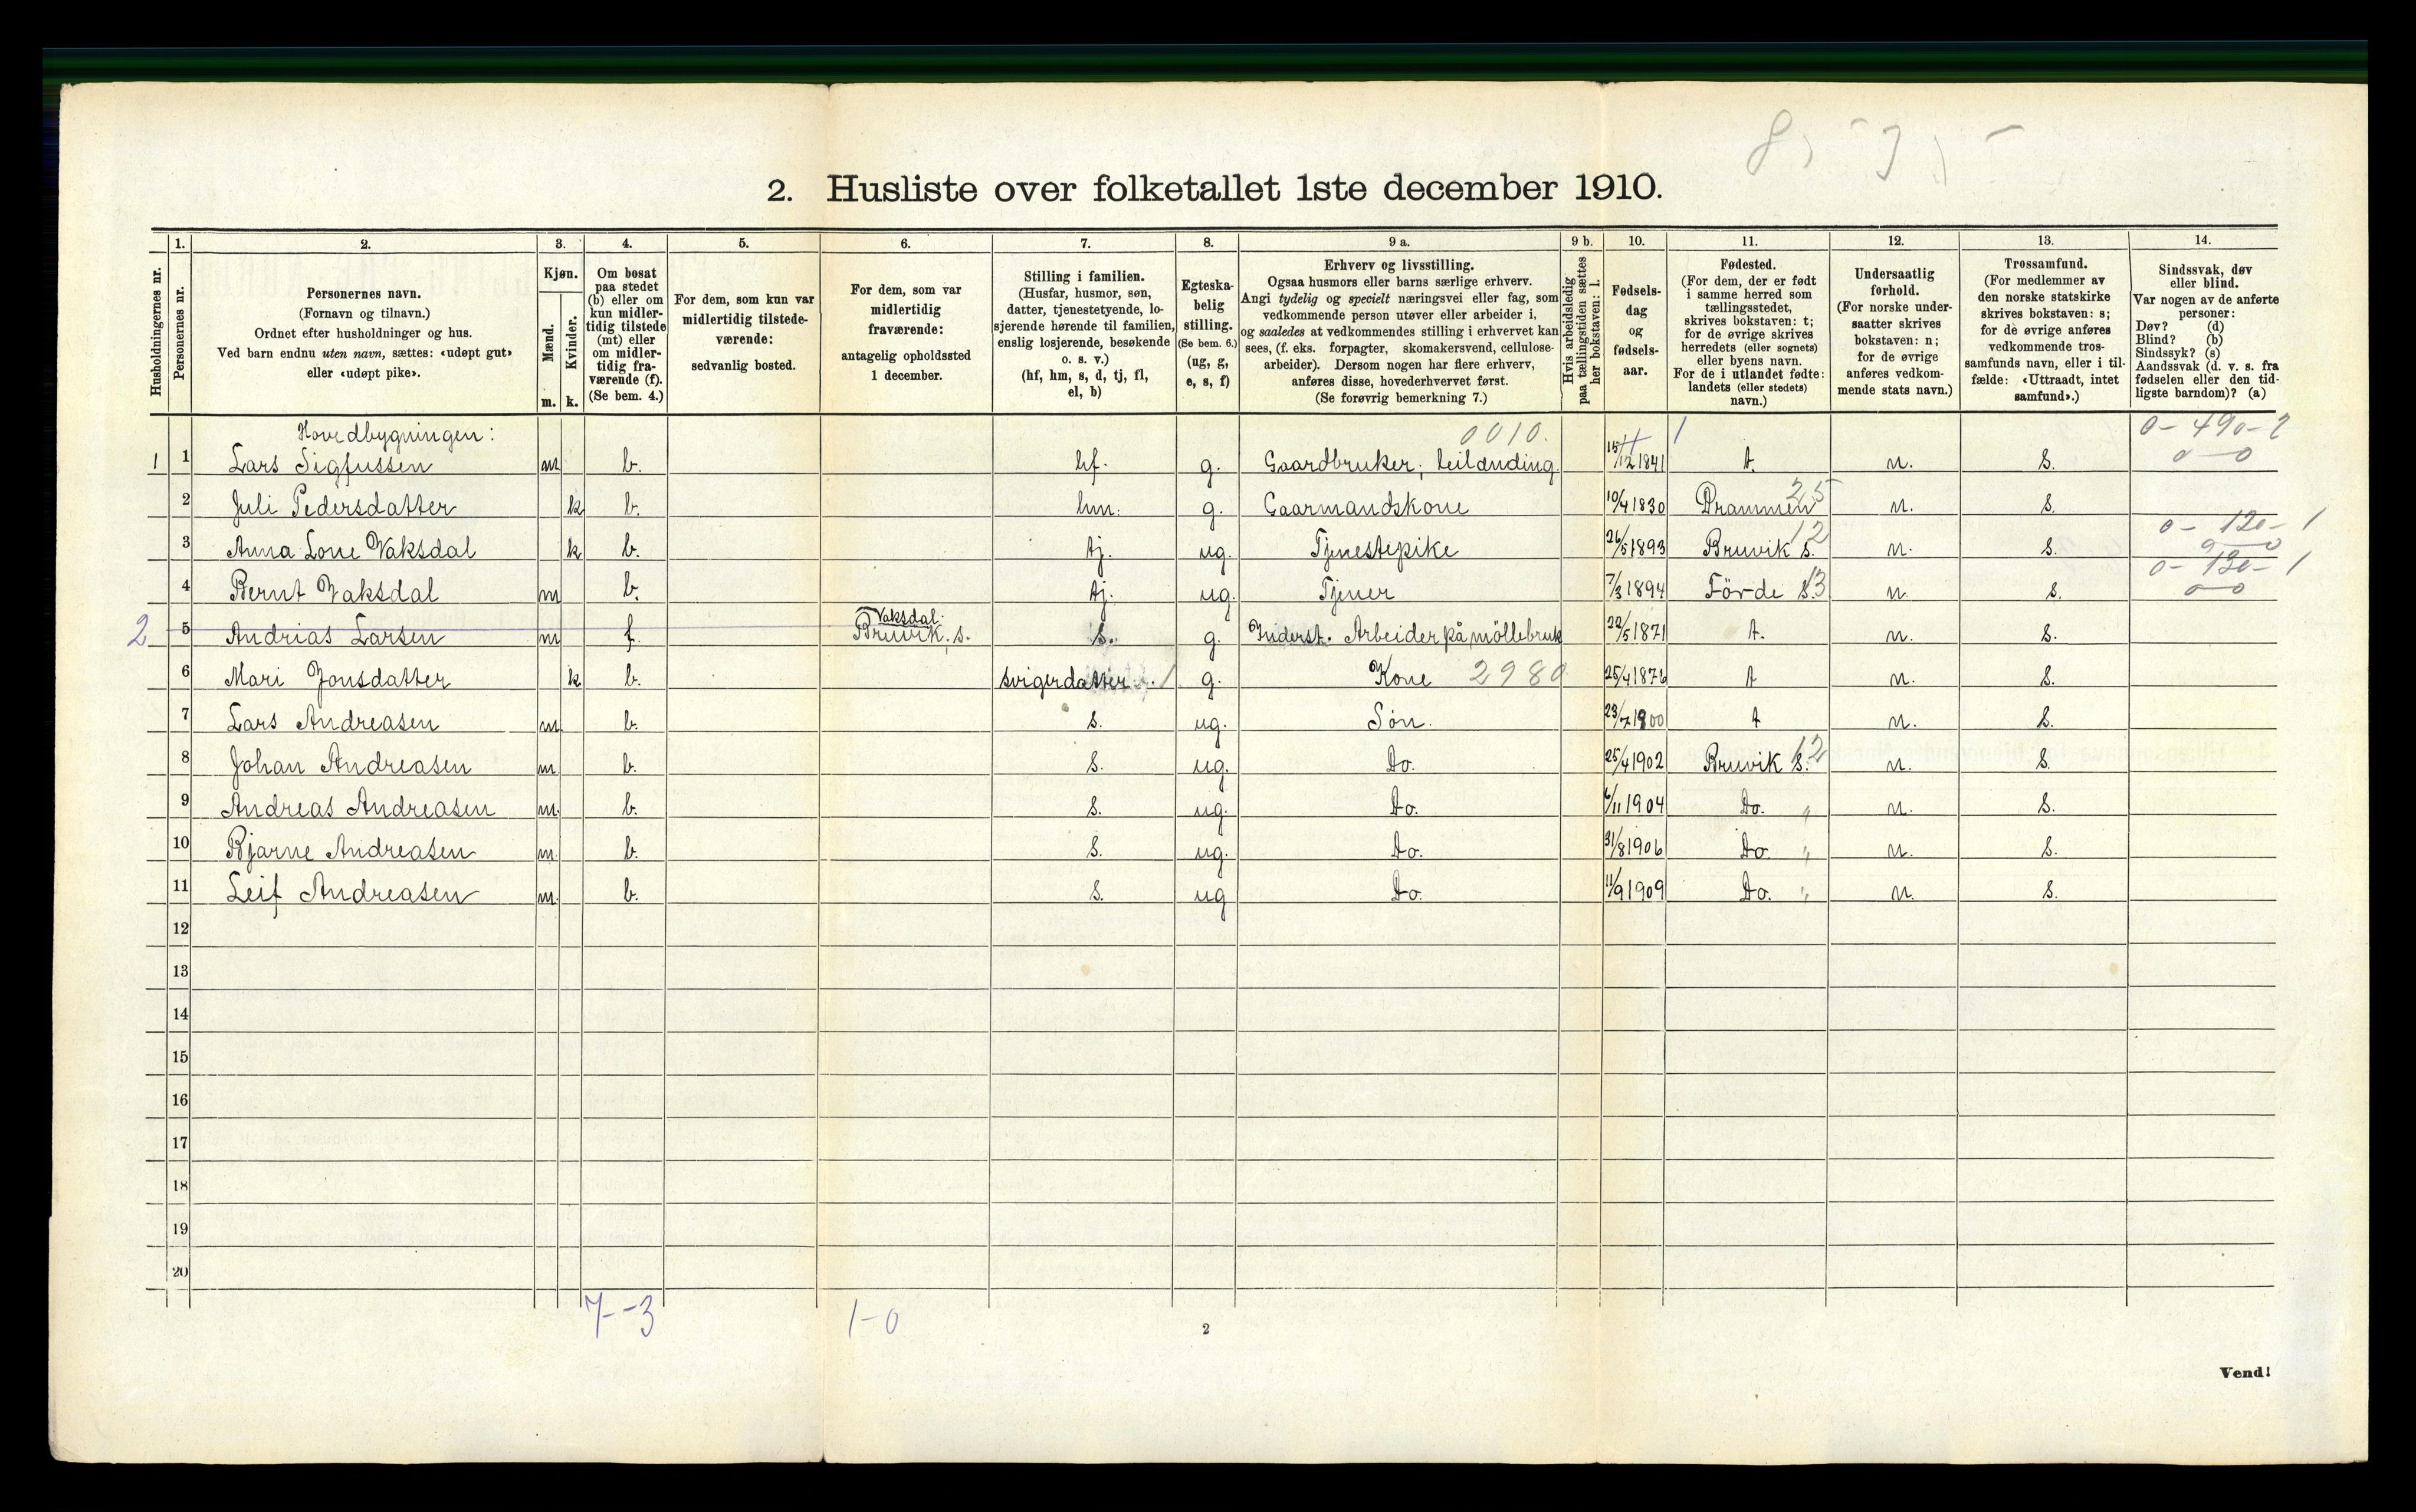 8,-3,-
2. Husliste over folketallet 1ste december 1910.
Husholdningernes nr.
1. Personernes nr.
2. Personernes navn. (Fornavn og tilnavn.) Ordnet efter husholdninger og hus. Ved barn endnu uten navn, sættes: «udøpt gut» eller «udøpt pike».
3. Kjøn. Mænd. m. Kvinder. k.
4. Om bosat paa stedet (b) eller om kun midler-tidig tilstede (mt) eller om midler-tidig fra-værende (f). (Se bem. 4.)
5. For dem, som kun var midlertidig tilstede-værende: sedvanlig bosted.
6. For dem, som var midlertidig fraværende: antagelig opholdssted 1 december.
7. Stilling i familien. (Husfar, husmor, søn, datter, tjenestetyende, lo-sjerende hørende til familien, enslig losjerende, besøkende o. s. v.) (hf, hm, s, d, tj, fl, el, b)
8. Egteska-belig stilling. (Se bem. 6.) (ug, g, e, s, f)
9 a. Erhverv og livsstilling. Ogsaa husmors eller barns særlige erhverv. Angi tydelig og specielt næringsvei eller fag, som vedkommende person utøver eller arbeider i, og saaledes at vedkommendes stilling i erhvervet kan sees, (f. eks. forpagter, skomakersvend, cellulose-arbeider). Dersom nogen har flere erhverv, anføres disse, hovederhvervet først. (Se forøvrig bemerkning 7.)
9 b. Hvis arbeidsledig paa tællingstiden sættes her bokstaven: l.
10. Fødsels-dag og fødsels-aar.
11. Fødested. (For dem, der er født i samme herred som tællingsstedet, skrives bokstaven: t; for de øvrige skrives herredets (eller sognets) eller byens navn. For de i utlandet fødte: landets (eller stedets) navn.)
12. Undersaatlig forhold. (For norske under-saatter skrives bokstaven: n; for de øvrige anføres vedkom-mende stats navn.)
13. Trossamfund. (For medlemmer av den norske statskirke skrives bokstaven: s; for de øvrige anføres vedkommende tros-samfunds navn, eller i til-fælde: «Uttraadt, intet samfund».)
14. Sindssvak, døv eller blind. Var nogen av de anførte personer: Døv? (d) Blind? (b) Sindssyk? (s) Aandssvak (d. v. s. fra fødselen eller den tid-ligste barndom)? (a)
Hovedbygningen: 0010. 1 0-490-2
1 1 Lars Sigfussen m b. hf. g. Gaardbruker, leilænding 15/12 1841 t. n. s. 0-0
2 Juli Pedersdatter k b. hm. g. Gaarmandskone 10/4 1830 Drammen 25 n. s.
3 Anna Lone Vaksdal k b. tj. ug. Tjenestepike 26/5 1893 Bruvik s. 12 n. s. 0-120-1 0-0
4 Bernt Vaksdal m b. tj. ug. Tjener 7/3 1894 Förde s. 13 n. s. 0-130-1 0-0
2 5 Andrias Larsen m f. Vaksdal. Bruvik, s. s. g. Inderst. Arbeider på möllebruk 22/5 1871 t. n. s.
6 Mari Jonsdatter k b. svigerdatter g. Kone 2980 25/4 1876 t n. s.
7 Lars Andreasen m b. s. ug. Søn. 23/7 1900 t n. s.
8 Johan Andreasen m. b. s. ug. Do. 25/4 1902 Bruvik s. 12 n. s.
9 Andreas Andreasen m. b. s. ug. Do. 6/11 1904 Do. " n. s.
10 Bjarne Andreasen m. b. s. ug. Do. 31/8 1906 Do. " n. s.
11 Leif Andreasen m. b. s. ug Do. 11/9 1909 Do. " n. s.
12
13
14
15
16
17
18
19
20
7-3 1-0
2
Vend!